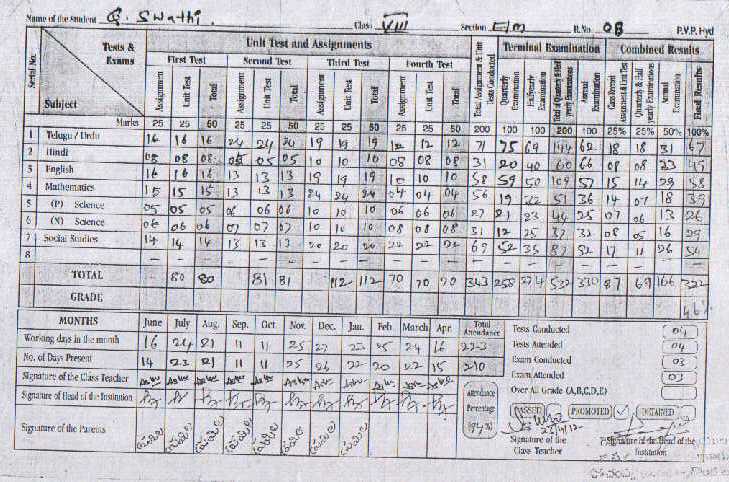 Name of the Student G. Swathi. Class VIII Section E/M R.No 08 P.V.P. Hyd
Serial No. Tests & Exams Subject Unit Test and Assignments Total Assignment & Unit Tests Conducted Terminal Examination Combined Results
First Test Second Test Third Test Fourth Test
Assignment Unit Test Total Assignment Unit Test Total Assignment Unit Test Total Assignment Unit Test Total Quarterly Examination Half yearly Examination Total of Quarterly & Half yearly Examinations Annual Examination Class Record Assignment & Unit Test Quarterly & Half yearly Examinations Annual Examination Final Results
Marks 25 25 50 25 25 50 25 25 50 25 25 50 200 100 100 200 100 25% 25% 50% 100%
1 Telugu / Urdu 16 16 16 24 24 19 19 19 12 12 12 71 75 69 144 62 18 18 31 67
2 Hindi 08 08 08 05 05 05 10 10 10 08 08 08 31 20 40 60 66 08 08
3 English 16 16 16 13 13 13 19 19 19 10 10 10 58 59 50 109 57 15 14 29 58
4 Mathematics 15 15 15 13 13 13 24 24 24 04 04 04 56 19 36 14 07 18 39
5 (P) Science 05 05 05 06 06 06 10 10 10 06 06 06 27 21 23 44 25 07 06 13 26
6 (N) Science 06 06 06 07 07 07 10 10 10 08 08 08 31 12 25 37 32 08 05 16 29
7 Social Studies 14 14 14 13 13 13 20 20 20 22 22 22 69 52 35 87 52 17 11 26 54
8 – – – – – – – – – – – – – – – – – – – – –
TOTAL 80 80 81 81 112 112 70 70 70 343 258 274 532 330 87 69 166 322
GRADE
MONTHS June July Aug. Sep. Oct. Nov. Dec. Jan. Feb. March Apr. Total Attendance
Working days in the month 16 24 21 11 11 25 27 25 24 16 223
No. of Days Present 14 23 21 11 11 25 26 22 20 22 15 210
Signature of the Class Teacher
Signature of Head of the Institution
Signature of the Parents
Attendance Percentage
Tests Conducted 04
Tests Attended 04
Exam Conducted 03
Exam Attended 03
Over All Grade (A,B,C,D,E)
PASSED PROMOTED ✓ DETAINED
23/4/12
Signature of the Class Teacher
Signature of the Head of the Institution